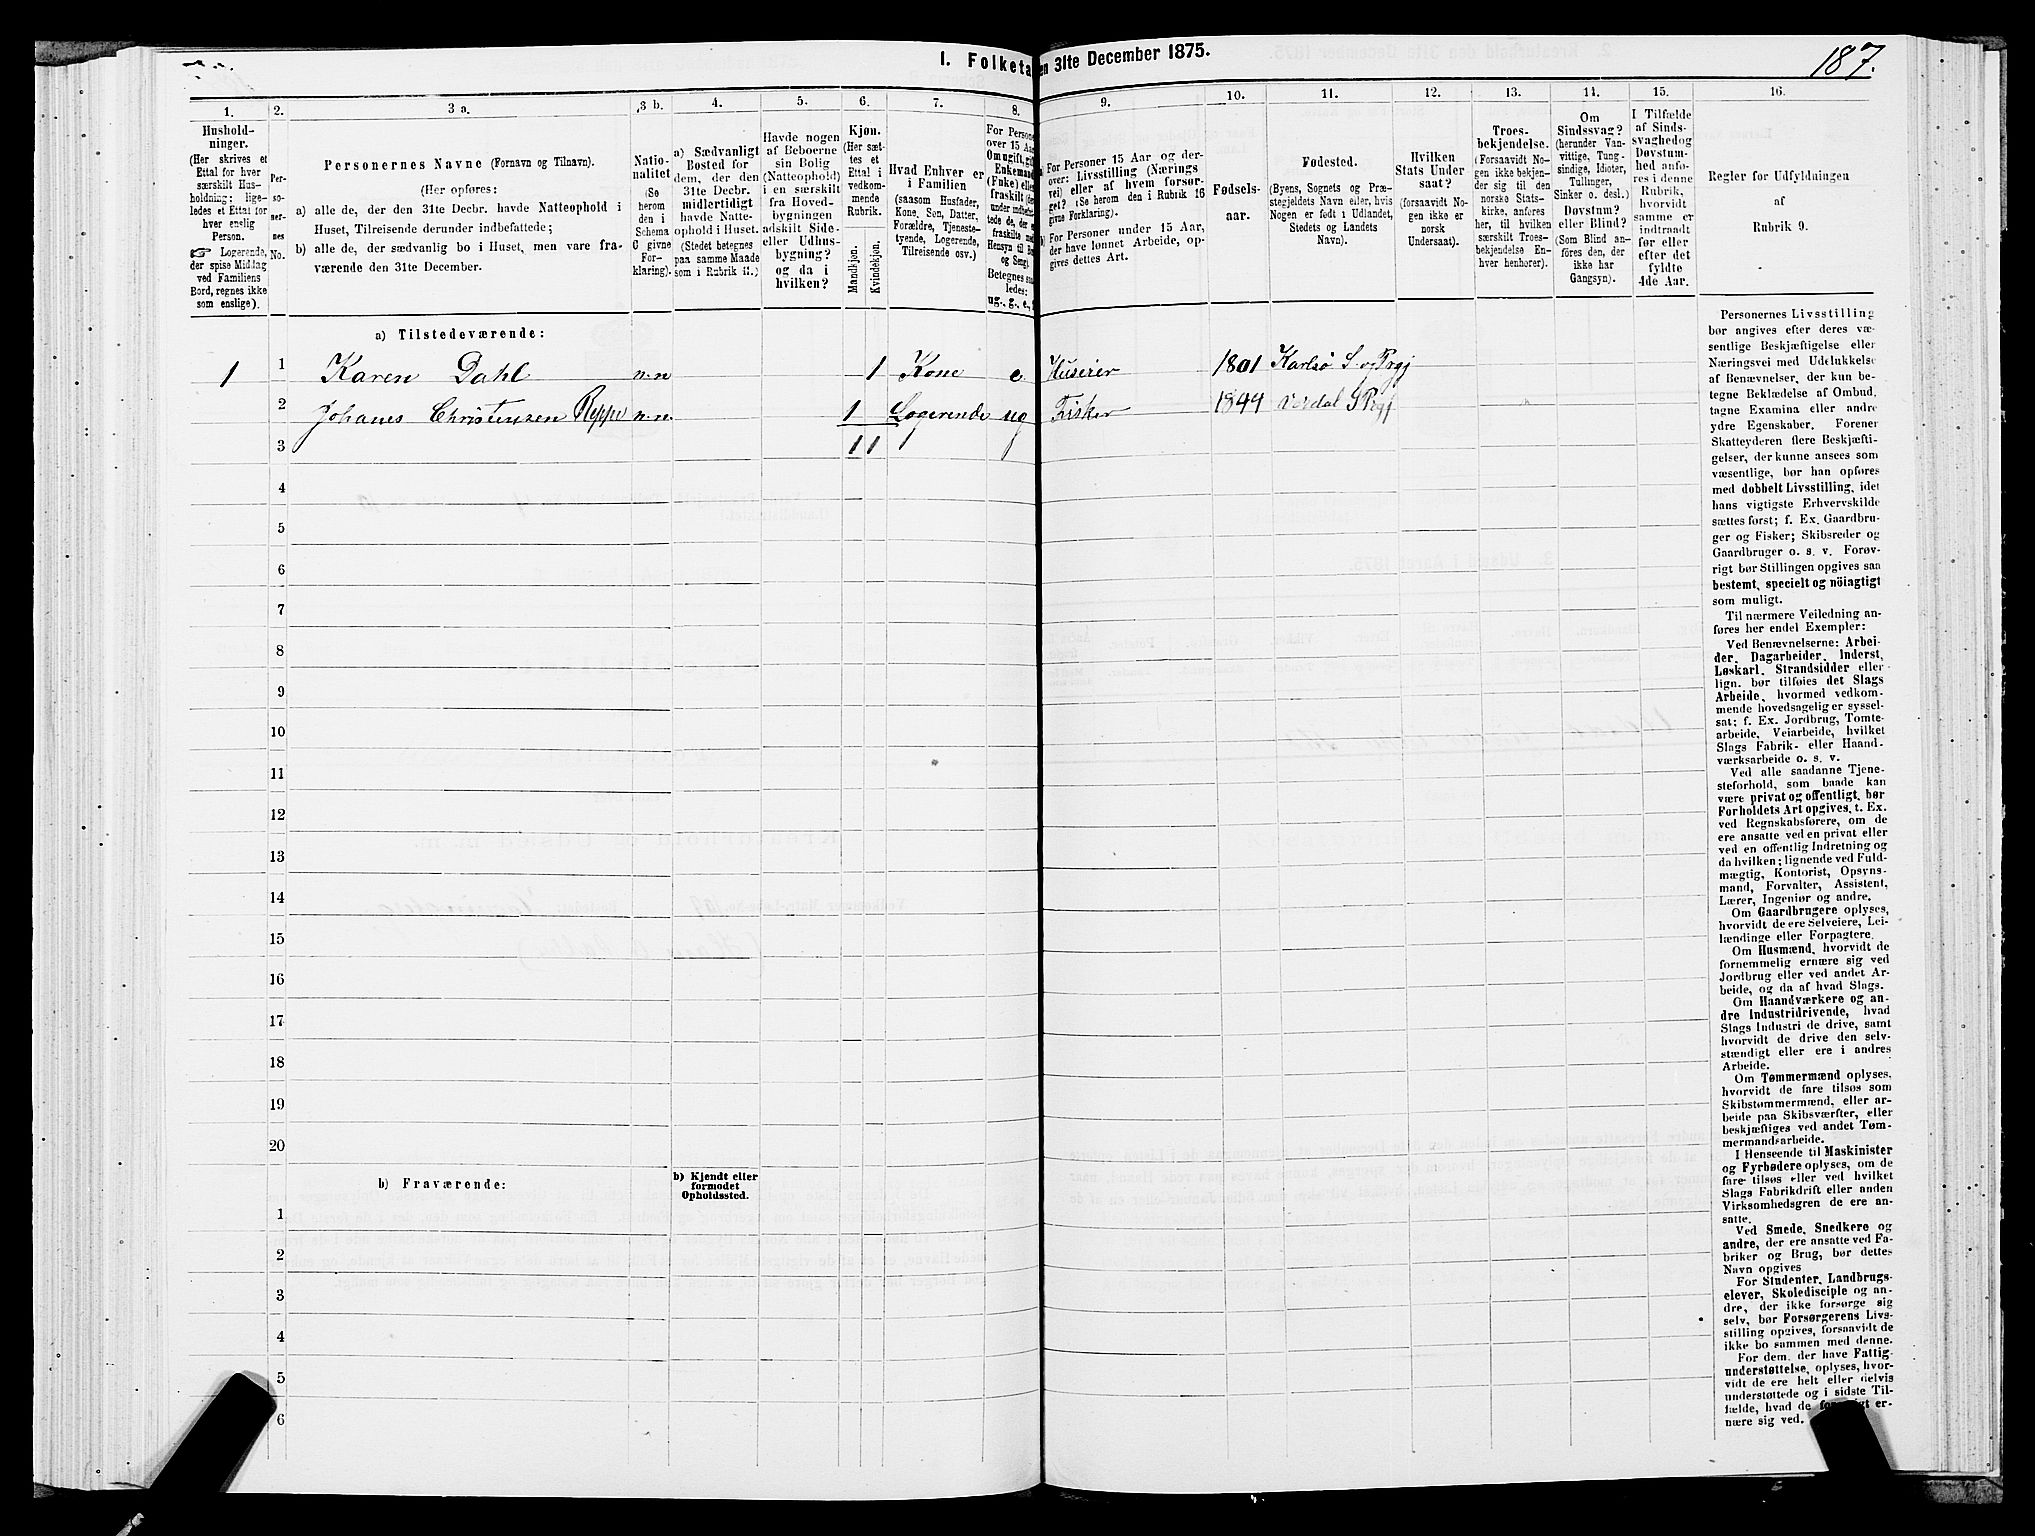 I. Folketa
en 31te December 1875.
187.
1.
Hushold-
ninger.
(Her skrives et
Ettal for hver
særskilt Hus-
holdning; lige-
ledes et Ettal for
hver enslig
Person.
☞ Logerende,
der spise Middag
ved Familiens
Bord, regnes ikke
som enslige).
2.
Per-
so-
ner-
nes
No.
3 a.
Personernes Navne (Fornavn og Tilnavn).
(Her opføres:
a) alle de, der den 31te Decbr. havde Natteophold i
Huset, Tilreisende derunder indbefattede;
b) alle de, der sædvanlig bo i Huset, men vare fra-
værende den 31te December.
3 b.
Natio-
nalitet
(Se
herom
den i
Schema
C givne
For-
klaring).
4.
a) Sædvanligt
Bosted for
dem, der den
31te Decbr.
midlertidigt
havde Natte-
ophold i Huset.
(Stedet betegnes
paa samme Maade
som i Rubrik 11.)
5.
Havde nogen
af Beboerne
sin Bolig
(Natteophold)
i en særskilt
fra Hoved-
bygningen
adskilt Side-
eller Udhus-
bygning?
og da i
hvilken?
6.
Kjøn.
(Her sæt-
tes et
Ettal i
vedkom-
mende
Rubrik.
Mandkjøn.
Kvindekjøn.
7.
Hvad Enhver er
i Familien
(saasom Husfader,
Kone, Søn, Datter,
Forældre, Tjeneste-
tyende, Logerende,
Tilreisende osv.)
8.
For Persone
over 15 Aar
Om ugift, gift
Enkemand
(Enke) elle
fraskilt
Betegnes saa
ledes:
ug., g., e., f
9.
a) For Personer 15 Aar og der-
over: Livsstilling (Nærings
vei) eller af hvem forsør-
get? (Se herom den i Rubrik 16
givne Forklaring).
b) For Personer under 15 Aar,
der have lønnet Arbeide, op-
gives dettes Art.
10.
Fødsels-
aar.
11.
Fødested.
(Byens, Sognets og Præ-
stegjeldets Navn eller, hvis
Nogen er født i Udlandet,
Stedets og Landets
Navn).
12.
Hvilken
Stats Under
saat?
(forsaavidt No-
gen ikke er
norsk
Undersaat).
13.
Troes-
bekjendelse.
(Forsaavidt No-
gen ikke bekjen-
der sig til den
norske Stats-
kirke, anføres
her, til hvilken
særskilt Troes-
bekjendelse En-
hver henhører).
14.
Om
Sindssvag?
(herunder Van-
vittige, Tung-
sindige, Idioter,
Tullinger,
Sinker o. desl.)
Døvstum?
eller Blind?
(Som Blind an-
føres den, der
ikke har
Gangsyn).
15.
I Tilfælde
af Sinds-
svaghed og
Døvstum-
hed anfø-
res i denne
Rubrik,
hvorvidt
samme er
indtraadt
før eller
efter det
fyldte
4de Aar.
16.
Regler for Udfyldningen
af
Rubrik 9.
a) Tilstedeværende:
1 1 Karen Dahl n.n 1 Kone e. Huserer 1801 Karlsø S. og Prgj
2 Johanes Christensen Reppe n.n. 1 Logerende ug Fisker 1844 Verdal S Prgj
3 1 1
4
5
6
7
8
9
10
11
12
13
14
15
16
17
18
19
20
b) Fraværende:
b) Kjendt eller
formodet
Opholdssted.
1
2
3
4
5
6
Personernes Livsstilling
bør angives efter deres væ-
sentlige Beskjæftigelse eller
Næringsvei med Udelukkelse
af Benævnelser, der kun be-
tegne Beklædelse af Ombud,
tagne Examina eller andre
ydre Egenskaber. Forener
Skatteyderen flere Beskjæfti-
gelser, der kunne ansees som
væsentlige, bør han opføres
med dobbelt Livsstilling, idet
hans vigtigste Erhvervskilde
sættes først; f. Ex. Gaardbru-
ger og Fisker; Skibsreder og
Gaardbruger o. s. v. Forøv-
rigt bør Stillingen opgives saa
bestemt, specielt og nöiagtigt
som muligt.
Til nærmere Veiledning an-
føres her endel Exempler:
Ved Benævnelserne: Arbei-
der, Dagarbeider, Inderst,
Løskarl, Strandsidder eller
lign. bør tilføies det Slags
Arbeide, hvormed vedkom-
mende hovedsagelig er syssel-
sat; f. Ex. Jordbrug, Tomte-
arbeide, Veiarbeide, hvilket
Slags Fabrik- eller Haand-
værksarbeide o. s. v.
Ved alle saadanne Tjene-
steforhold, som baade kan
være privat og offentligt, bør
Forholdets Art opgives, t. Ex.
ved Regnskabsførere, om de
ere ansatte ved en privat eller
ved en offentlig Indretning og
da hvilken; lignende ved Fuld-
mægtig, Kontorist, Opsyns-
mand, Forvalter, Assistent,
Lærer, Ingeniør og andre.
Om Gaardbrugere oplyses,
hvorvidt de ere Selveiere, Lei-
lændinge eller Forpagtere.
Om Husmænd, hvorvidt de
fornemmelig ernære sig ved
Jordbrug eller ved andet Ar-
beide, og da af hvad Slags.
Om Haandværkere og an-
dre Industridrivende, hvad
Slags Industri de drive, samt
hvorvidt de drive den selv-
stændigt eller ere i andres
Arbeide.
Om Tømmermænd oplyses,
hvorvidt de fare tilsøs som
Skibstømmermænd, eller ar-
beide paa Skibsværfter, eller
beskjæftiges ved andet Tøm-
mermandsarbeide.
I Henseende til Maskinister
og Fyrbødere oplyses, om de
fare tilsøs eller ved hvilket
Slags Fabrikdrift eller anden
Virksomhedsgren de ere an-
satte.
Ved Smede, Snedkere og
andre, der ere ansatte ved Fa-
briker og Brug, bør dettes
Navn opgives
For Studenter, Landbrugs-
elever, Skoledisciple og an-
dre, der ikke forsørge sig
selv, bør Forsørgerens Livs-
stilling opgives, forsaavidt de
ikke bo sammen med denne.
For dem, der have Fattig-
understøttelse, oplyses, hvor-
vidt de ere helt eller delvis
understøttede og i sidste Til-
fælde, hvad de er-
nære sig ved.